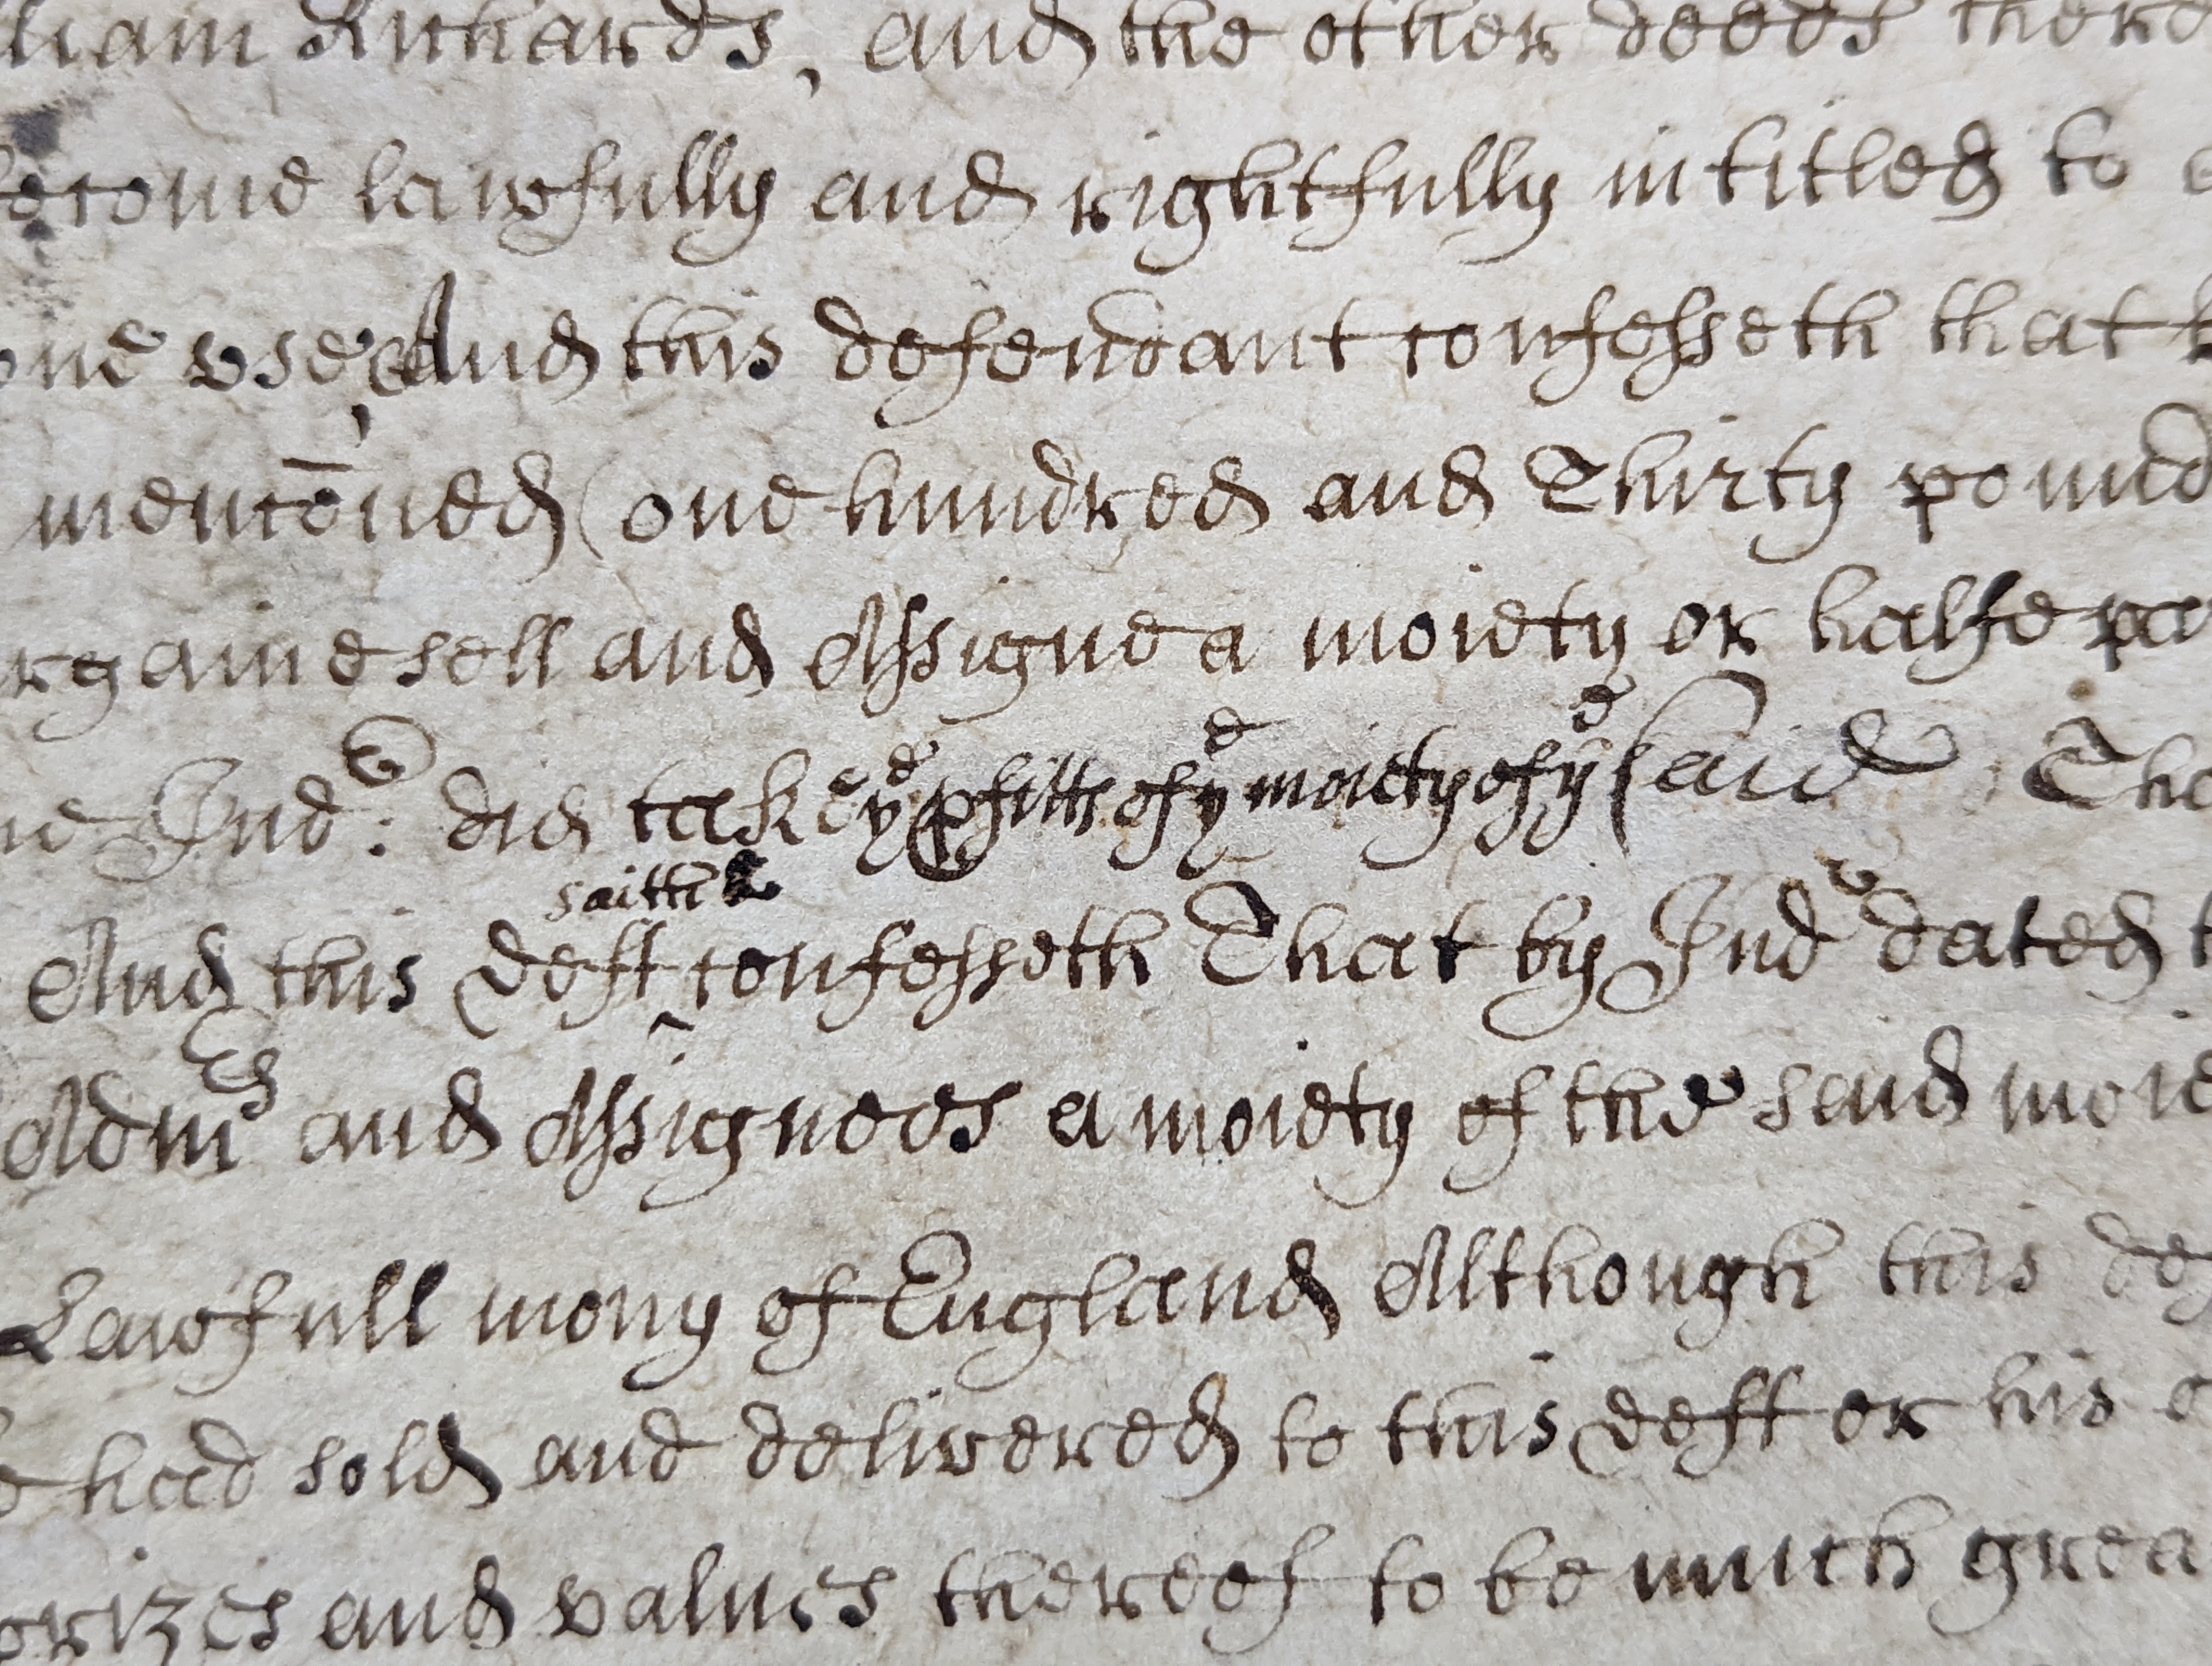 liam Richards, and the other deeds there
become lawfully and rightfully intitled to
one vse, And this defendant confesseth that
mencōned (one hundred and Thirty pound
rgaine sell and Assigne a moiety or halfe pa
Indre: did take ye pfitts of ye moiety of ye said Tho
saith
And this Deft ‸ confesseth That by Indre dated t
Admrs and Assignees a moiety of the said moie
Lawfull mony of England Although this def
had sold and delivered to this Deft or his o
prizes and values thereof to be much grea